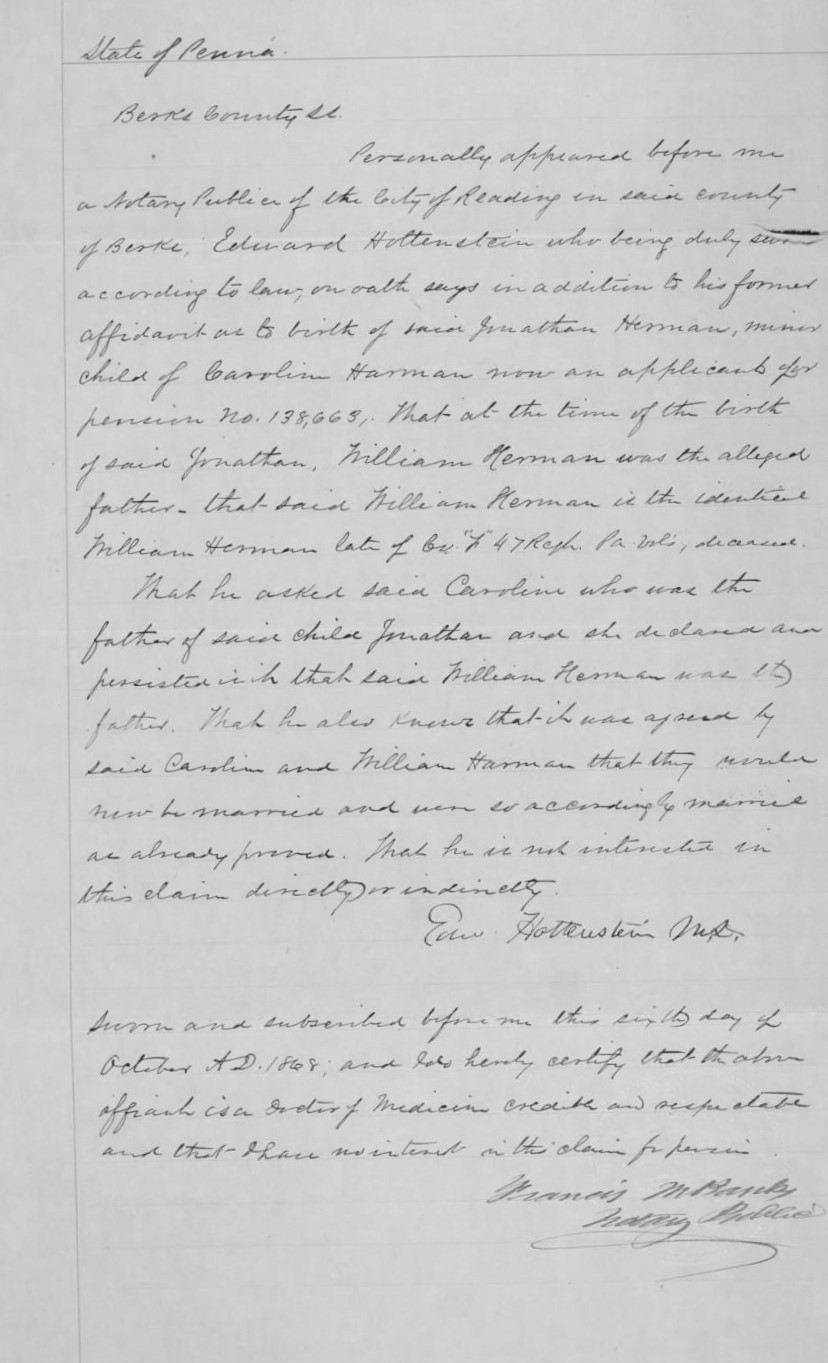 State of Penna.
Berks County SS.
Personally appeared before me
a Notary Public of the City of Reading in said county
of Berks, Edward Hottenstein who being duly sworn
according to law, on oath says in addition to his former
affidavit as to birth of said Jonathan Herman, minor
child of Caroline Harman now an applicant for
pension No. 138,663,. That at the time of the birth
of said Jonathan, William Herman was the alleged
father - that said William Herman is the identical
William Herman late of Co. "F" 47 Regt. Pa. Vols, deceased.
That he asked said Caroline who was the
father of said child Jonathan and she declared and
persisted in it that said William Herman was the
father. That he also knows that it was agreed by
said Caroline and William Harman that they would
now be married and were so accordingly married
as already proved. That he is not interested in
this claim directly or indirectly.
Edw. Hottenstein M.D.
Sworn and subscribed before me this sixth day of
October A.D. 1868; and I do hereby certify that the above
affiant is a Doctor of Medicine credible and respectable
and that I have no interest in this claim for pension.
Francis M Banks
Notary Public